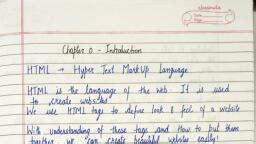 classmate
Date
Page
Chapter 0 - Introduction
HTML → Hyper Text MarkUp Language
HTML is the language of the web. It is used
to create websites
We use HTML tags to define look & feel of a website
With understanding of these tags and How to put them
together, we can create beautiful websites easily!